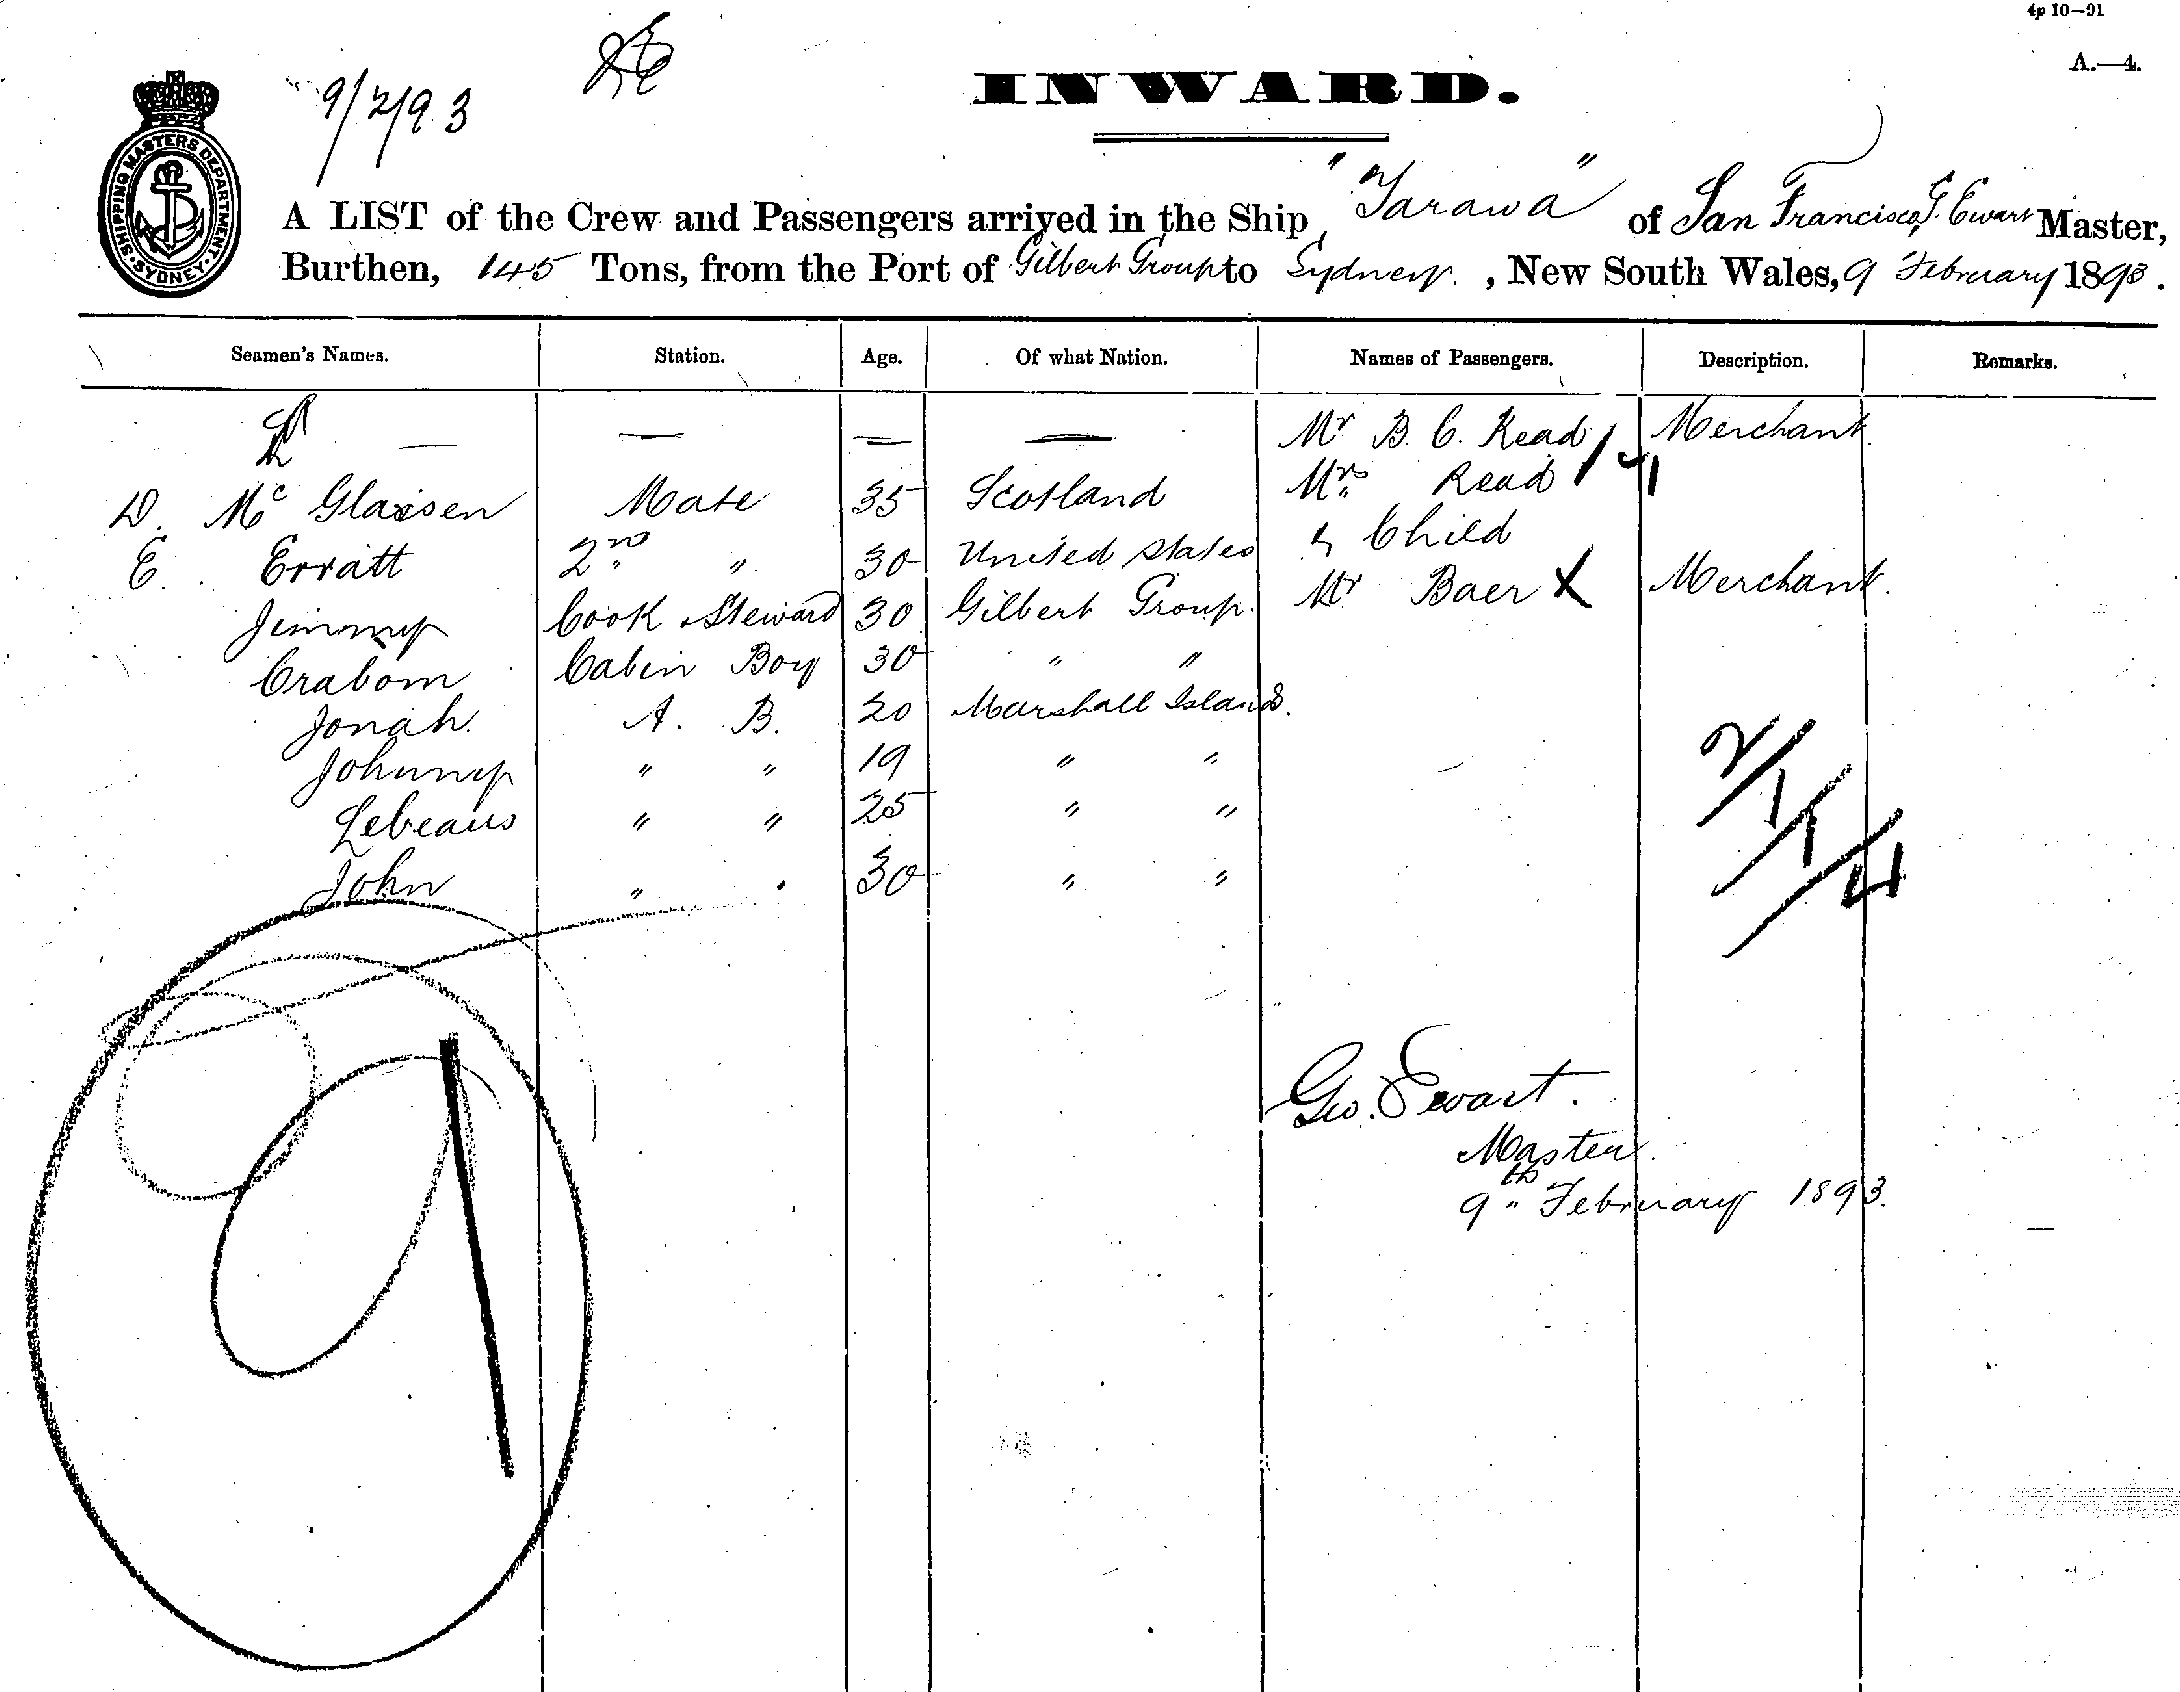 4p 10—91
A.—4.
9/2/93
INWARD.
SHIPPING MASTERS DEPARTMENT
SYDNEY
A LIST of the Crew and Passengers arrived in the Ship "Tarawa" of San Francisco, G. Ewart Master,
Burthen, 145 Tons, from the Port of Gilbert Group to Sydney. , New South Wales, 9 February 1893.
Seamen's Names. Station. Age. Of what Nation. Names of Passengers. Description. Remarks.
— — — — Mr B. C. Read Merchant.
D. Mc Glassen Mate 35 Scotland Mrs Read 1
E. Erratt 2nd " 30 United States & Child
Jimmy Cook & Steward 30 Gilbert Group. Mr Baer X Merchant.
Crabom Cabin Boy 30 " "
Jonah. A. B. 20 Marshall Islands.
Johnny " " 19 " "
Lebeaus " " 25 " "
John " " 30 " "
2/1/1/4
9
Geo. Ewart.
Master.
9th February 1893.